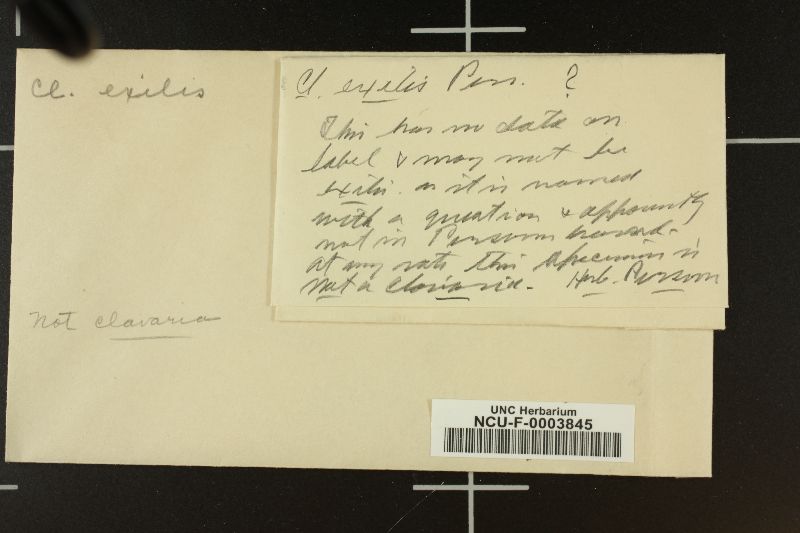 Cl. exilis
Cl. exilis Pers. ?
This has no data on
label & may not be
exilis. as it is named
with a question & apparently
not in Persoon's hand.
At any rate this specimen is
not a Clavaria. Herb. Persoon
Not Clavaria
UNC Herbarium
NCU-F-0003845